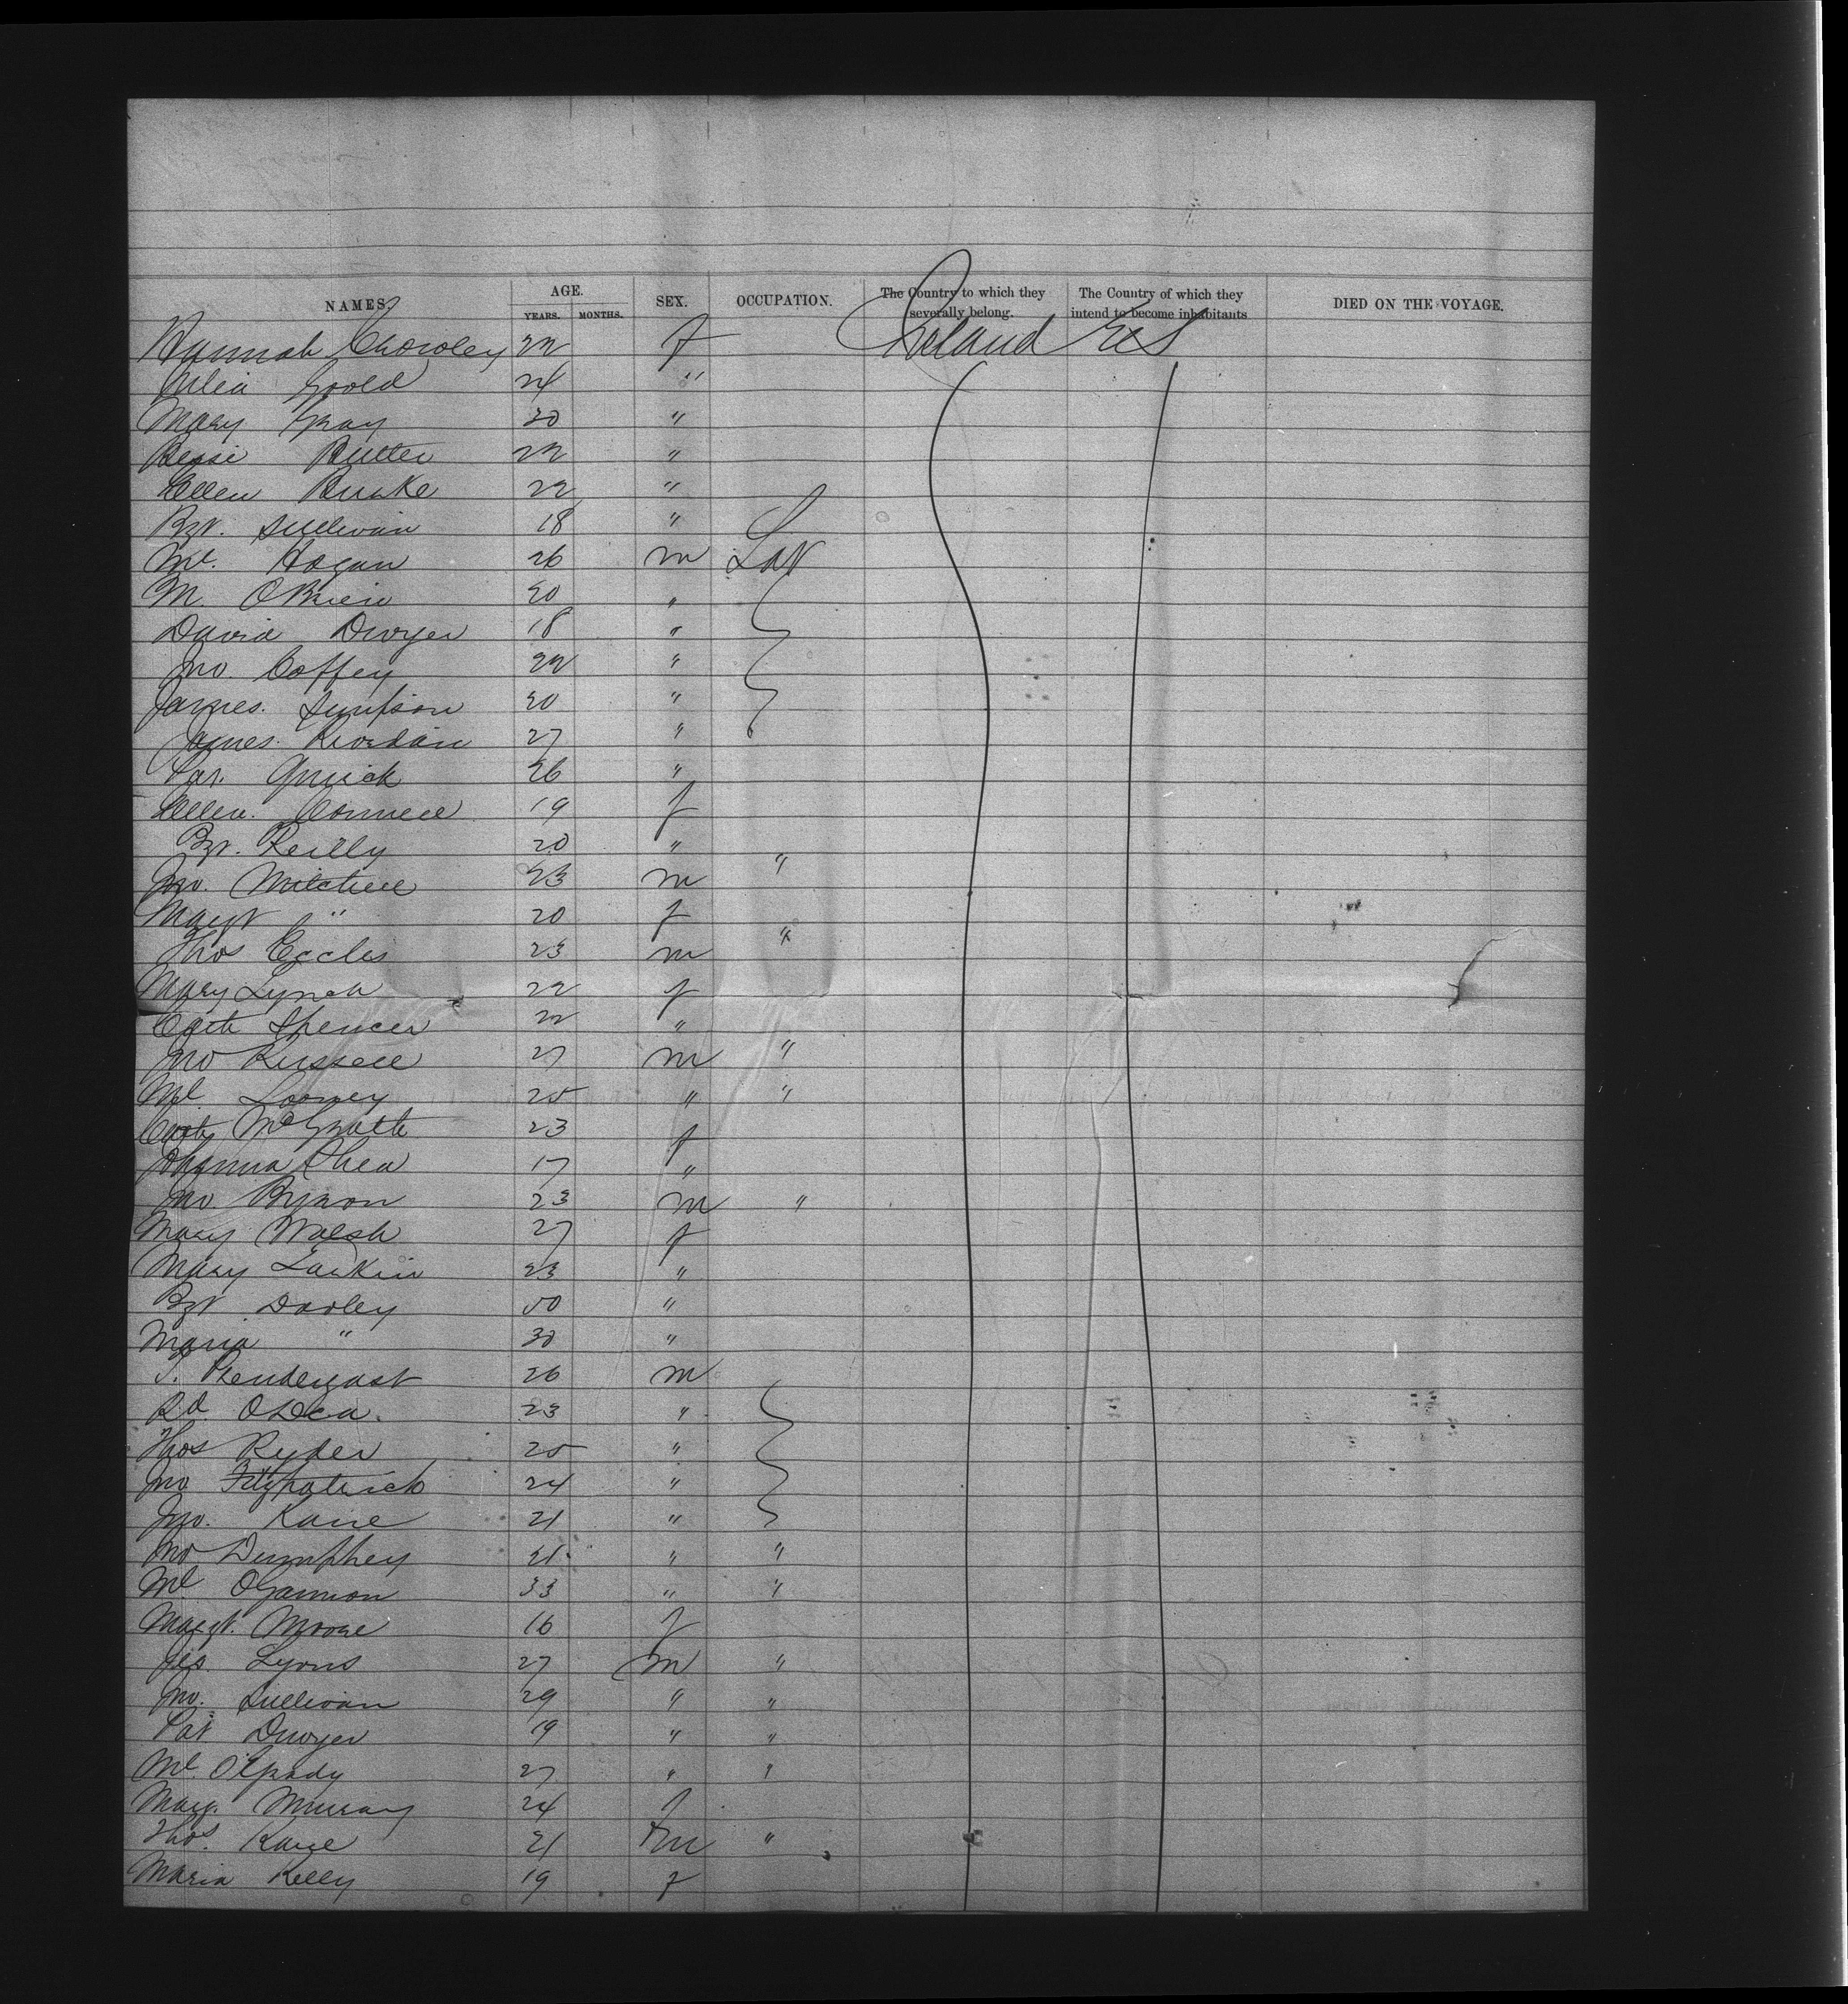 NAMES. AGE. SEX. OCCUPATION. The Country to which they severally belong. The Country of which they intend to become inhabitants DIED ON THE VOYAGE.
YEARS. MONTHS.
Hannah Crowley 22 f Ireland U S
Julia Goold 24 "
Mary Gray 30 "
Bessie Butler 22 "
Ellen Burke 22 "
Bgt. Sullivan 18 "
Ml. Hogan 26 m Lab
M. OBrien 20 "
David Dwyer 18 "
Jno. Coffey 22 "
James. Simpson 20 "
James. Riordan 27 "
Pat. 26 "
Ellen. Connell 19 f
Bgt. Reilly 20 " "
Jno. Mitchell 23 m
Margt " 20 f
Thos Eccles 23 m "
Mary Lynch 22 f
Cath Spencer 22 "
Jno Russell 27 m "
Ml Looney 25 " "
Cath McGrath 23 f
Johanna Shea 17 "
Jno. Byron 23 m "
Mary Walsh 27 f
Mary Larkin 23 "
Bgt Dooley 50 "
Maria " 30 "
T. Pendergast 26 m
Rd. ODea. 23 "
Thos Ryder 25 "
Jno Fitzpatrick 24 "
Jno. Kane 21 "
Jno Dumphey 21 " "
Ml OGannon 33 " "
Margt. Moore 16 f
Jas. Lyons 27 m "
Jno. Sullivan 29 " "
Pat Dwyer 19 " "
Ml. OGrady 27 " "
Mary. Murray 24 f
Thos. Kane 21 m "
Maria Kelly 19 f